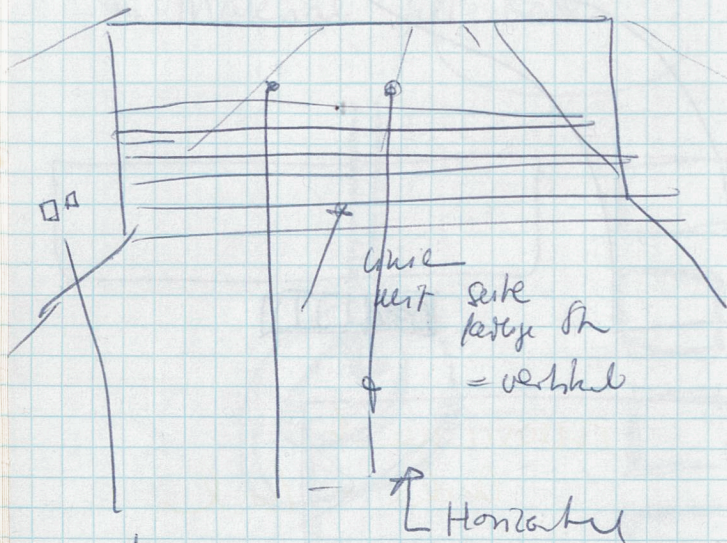 Linie
mit Seite
= vertikal
Horizontal